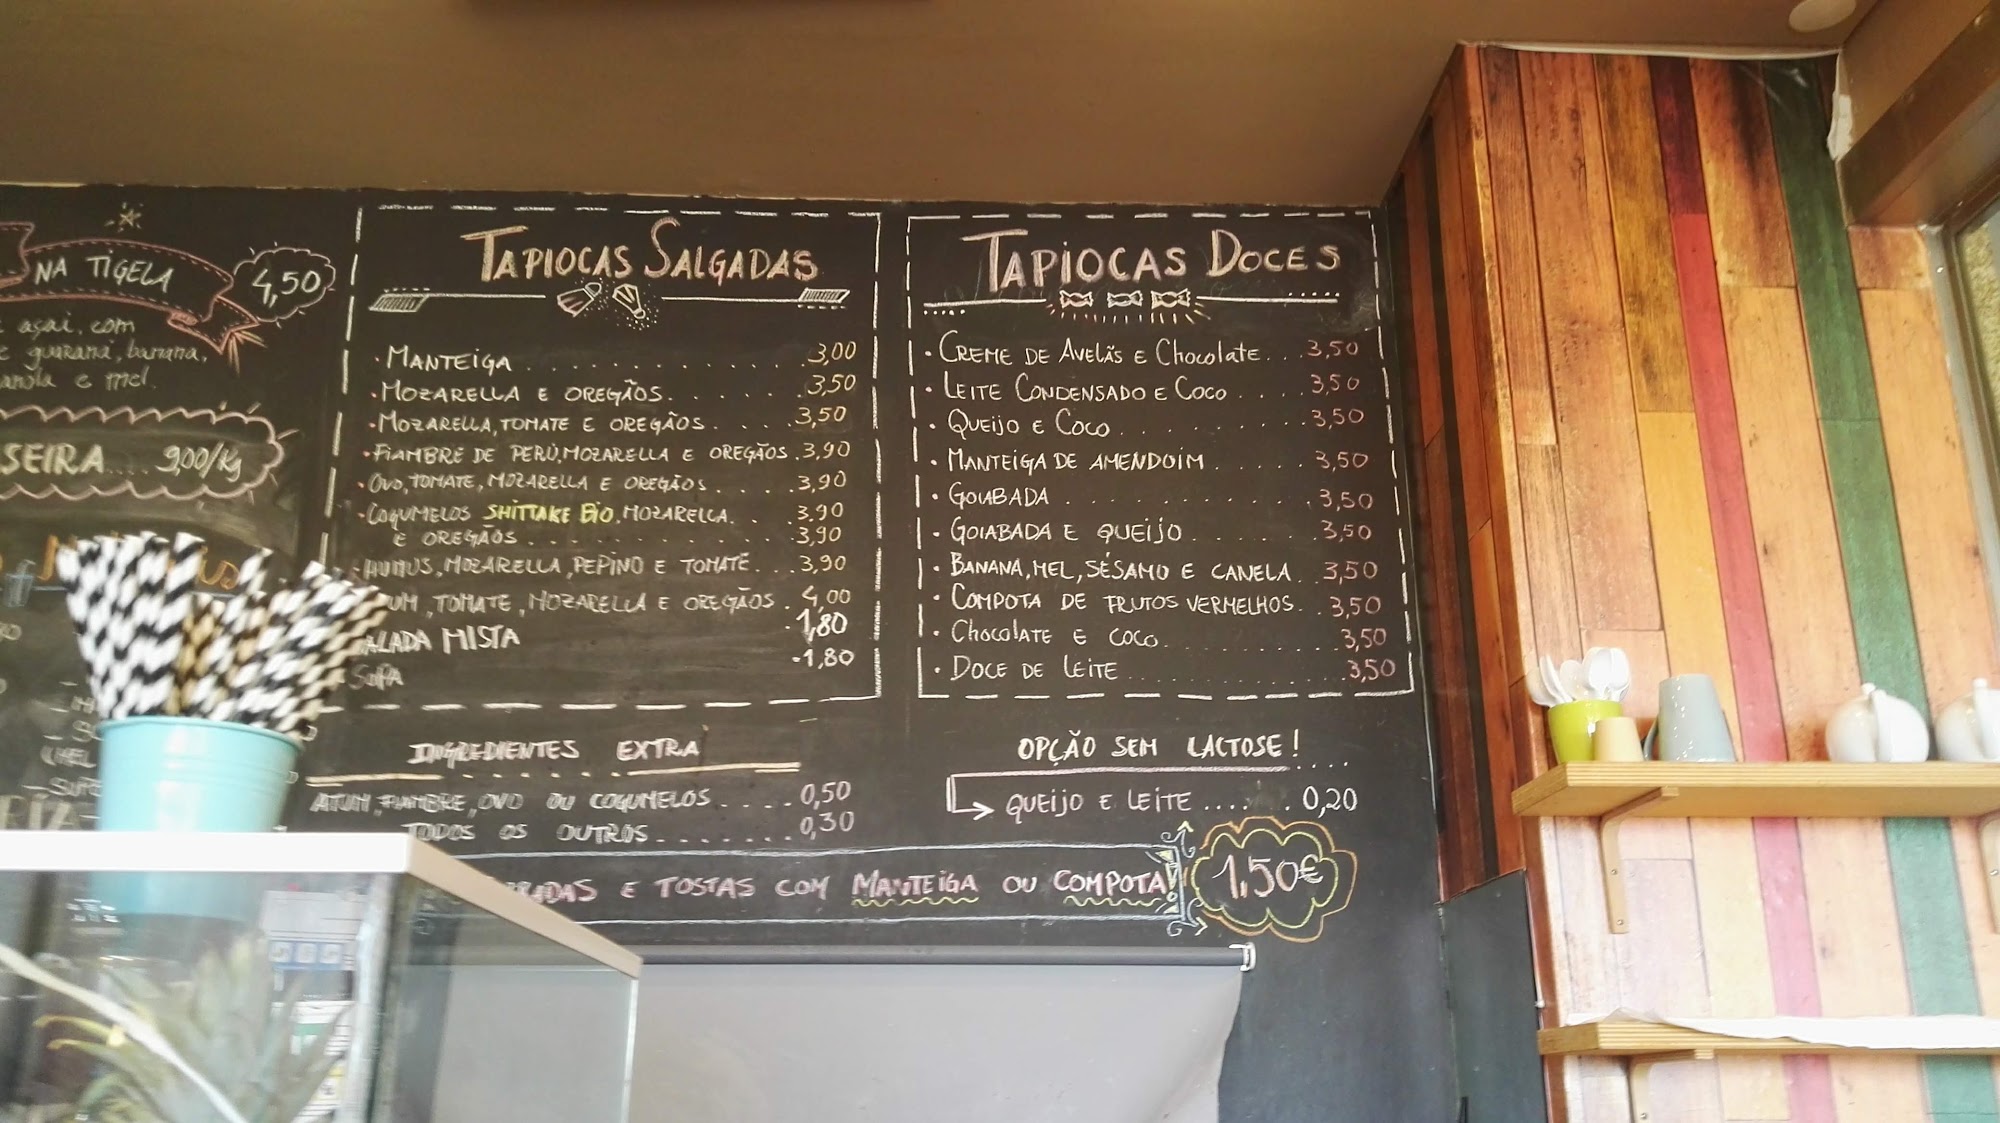 NA TIGELA
4,50
açaí, com
guaraná, banana,
e mel.
SEIRA.... 9,00/Kg
TAPIOCAS SALGADAS
• MANTEIGA . . . . . . . . . . . . . 3,00
• MOZARELLA E OREGÃOS. . . . . . . 3,50
• MOZARELLA, TOMATE E OREGÃOS. . . . 3,50
• FIAMBRE DE PERÚ, MOZARELLA E OREGÃOS . 3,90
• OVO, TOMATE, MOZARELLA E OREGÃOS. . . . . 3,90
• COGUMELOS SHIITAKE BIO, MOZARELLA. . . 3,90
E OREGÃOS. . . . . . . . . . . . 3,90
HUMUS, MOZARELLA, PEPINO E TOMATE. . . 3,90
UM, TOMATE, MOZARELLA E OREGÃOS . 4,00
ALADA MISTA -1,80
SOPA -1,80
INGREDIENTES EXTRA
ATUM, FIAMBRE, OVO OU COGUMELOS . . . . 0,50
TODOS OS OUTROS . . . . . . . 0,30
TAPIOCAS DOCES
• CREME DE AVELÃS E CHOCOLATE. . . 3,50
• LEITE CONDENSADO E COCO . . . . 3,50
• QUEIJO E COCO. . . . . . . . . 3,50
• MANTEIGA DE AMENDOIM . . . . . . 3,50
• GOIABADA . . . . . . . . . . . 3,50
• GOIABADA E QUEIJO . . . . . . . 3,50
• BANANA, MEL, SÉSAMO E CANELA . . 3,50
• COMPOTA DE FRUTOS VERMELHOS. . . 3,50
• CHOCOLATE E COCO. . . . . . . . . . 3,50
• DOCE DE LEITE . . . . . . . . . . . . 3,50
OPÇÃO SEM LACTOSE!
QUEIJO E LEITE .... . .. 0,20
RADAS E TOSTAS COM MANTEIGA OU COMPOTA! 1,50€